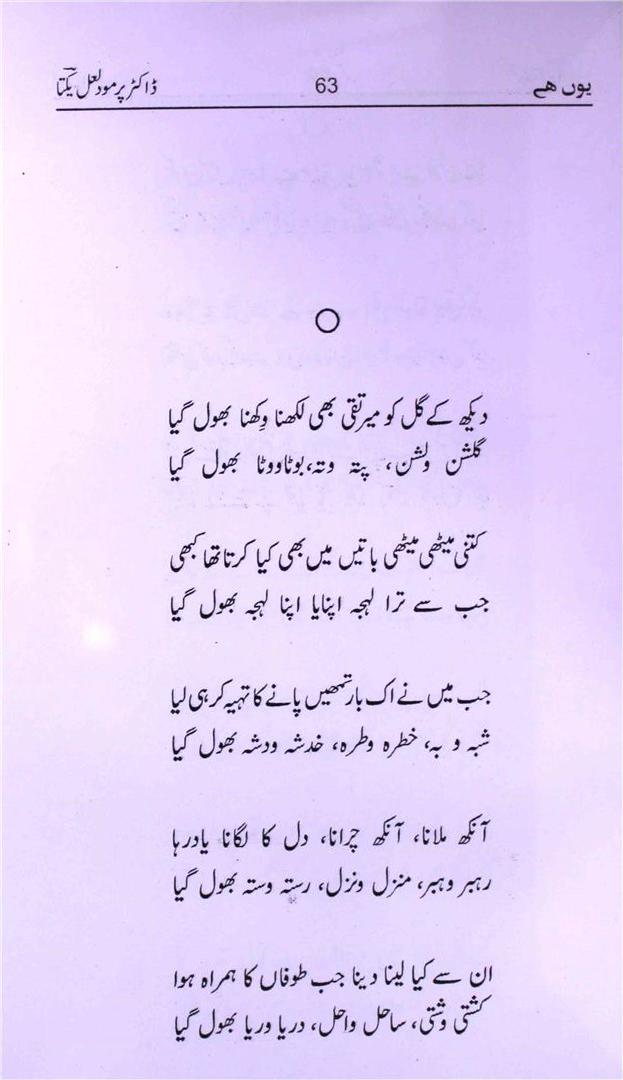 یوں ہے
63
ڈاکٹر پرمود لعل یکتا
دیکھ کے گل کو میر تقی بھی لکھنا وکھنا بھول گیا
گلشن ولشن، پتہ وتہ، بوٹا ووٹا بھول گیا
کتنی میٹھی میٹھی باتیں میں بھی کیا کرتا تھا کبھی
جب سے ترا لہجہ اپنایا اپنا لہجہ بھول گیا
جب میں نے اک بار تمھیں پانے کا تہیہ کر ہی لیا
شبہ و بہ، خطرہ وطرہ، خدشہ ودشہ بھول گیا
آنکھ ملانا، آنکھ چرانا، دل کا لگانا یاد رہا
رہبر وہبر، منزل ونزل، رستہ وستہ بھول گیا
ان سے کیا لینا دینا جب طوفاں کا ہمراہ ہوا
کشتی وشتی، ساحل واحل، دریا وریا بھول گیا